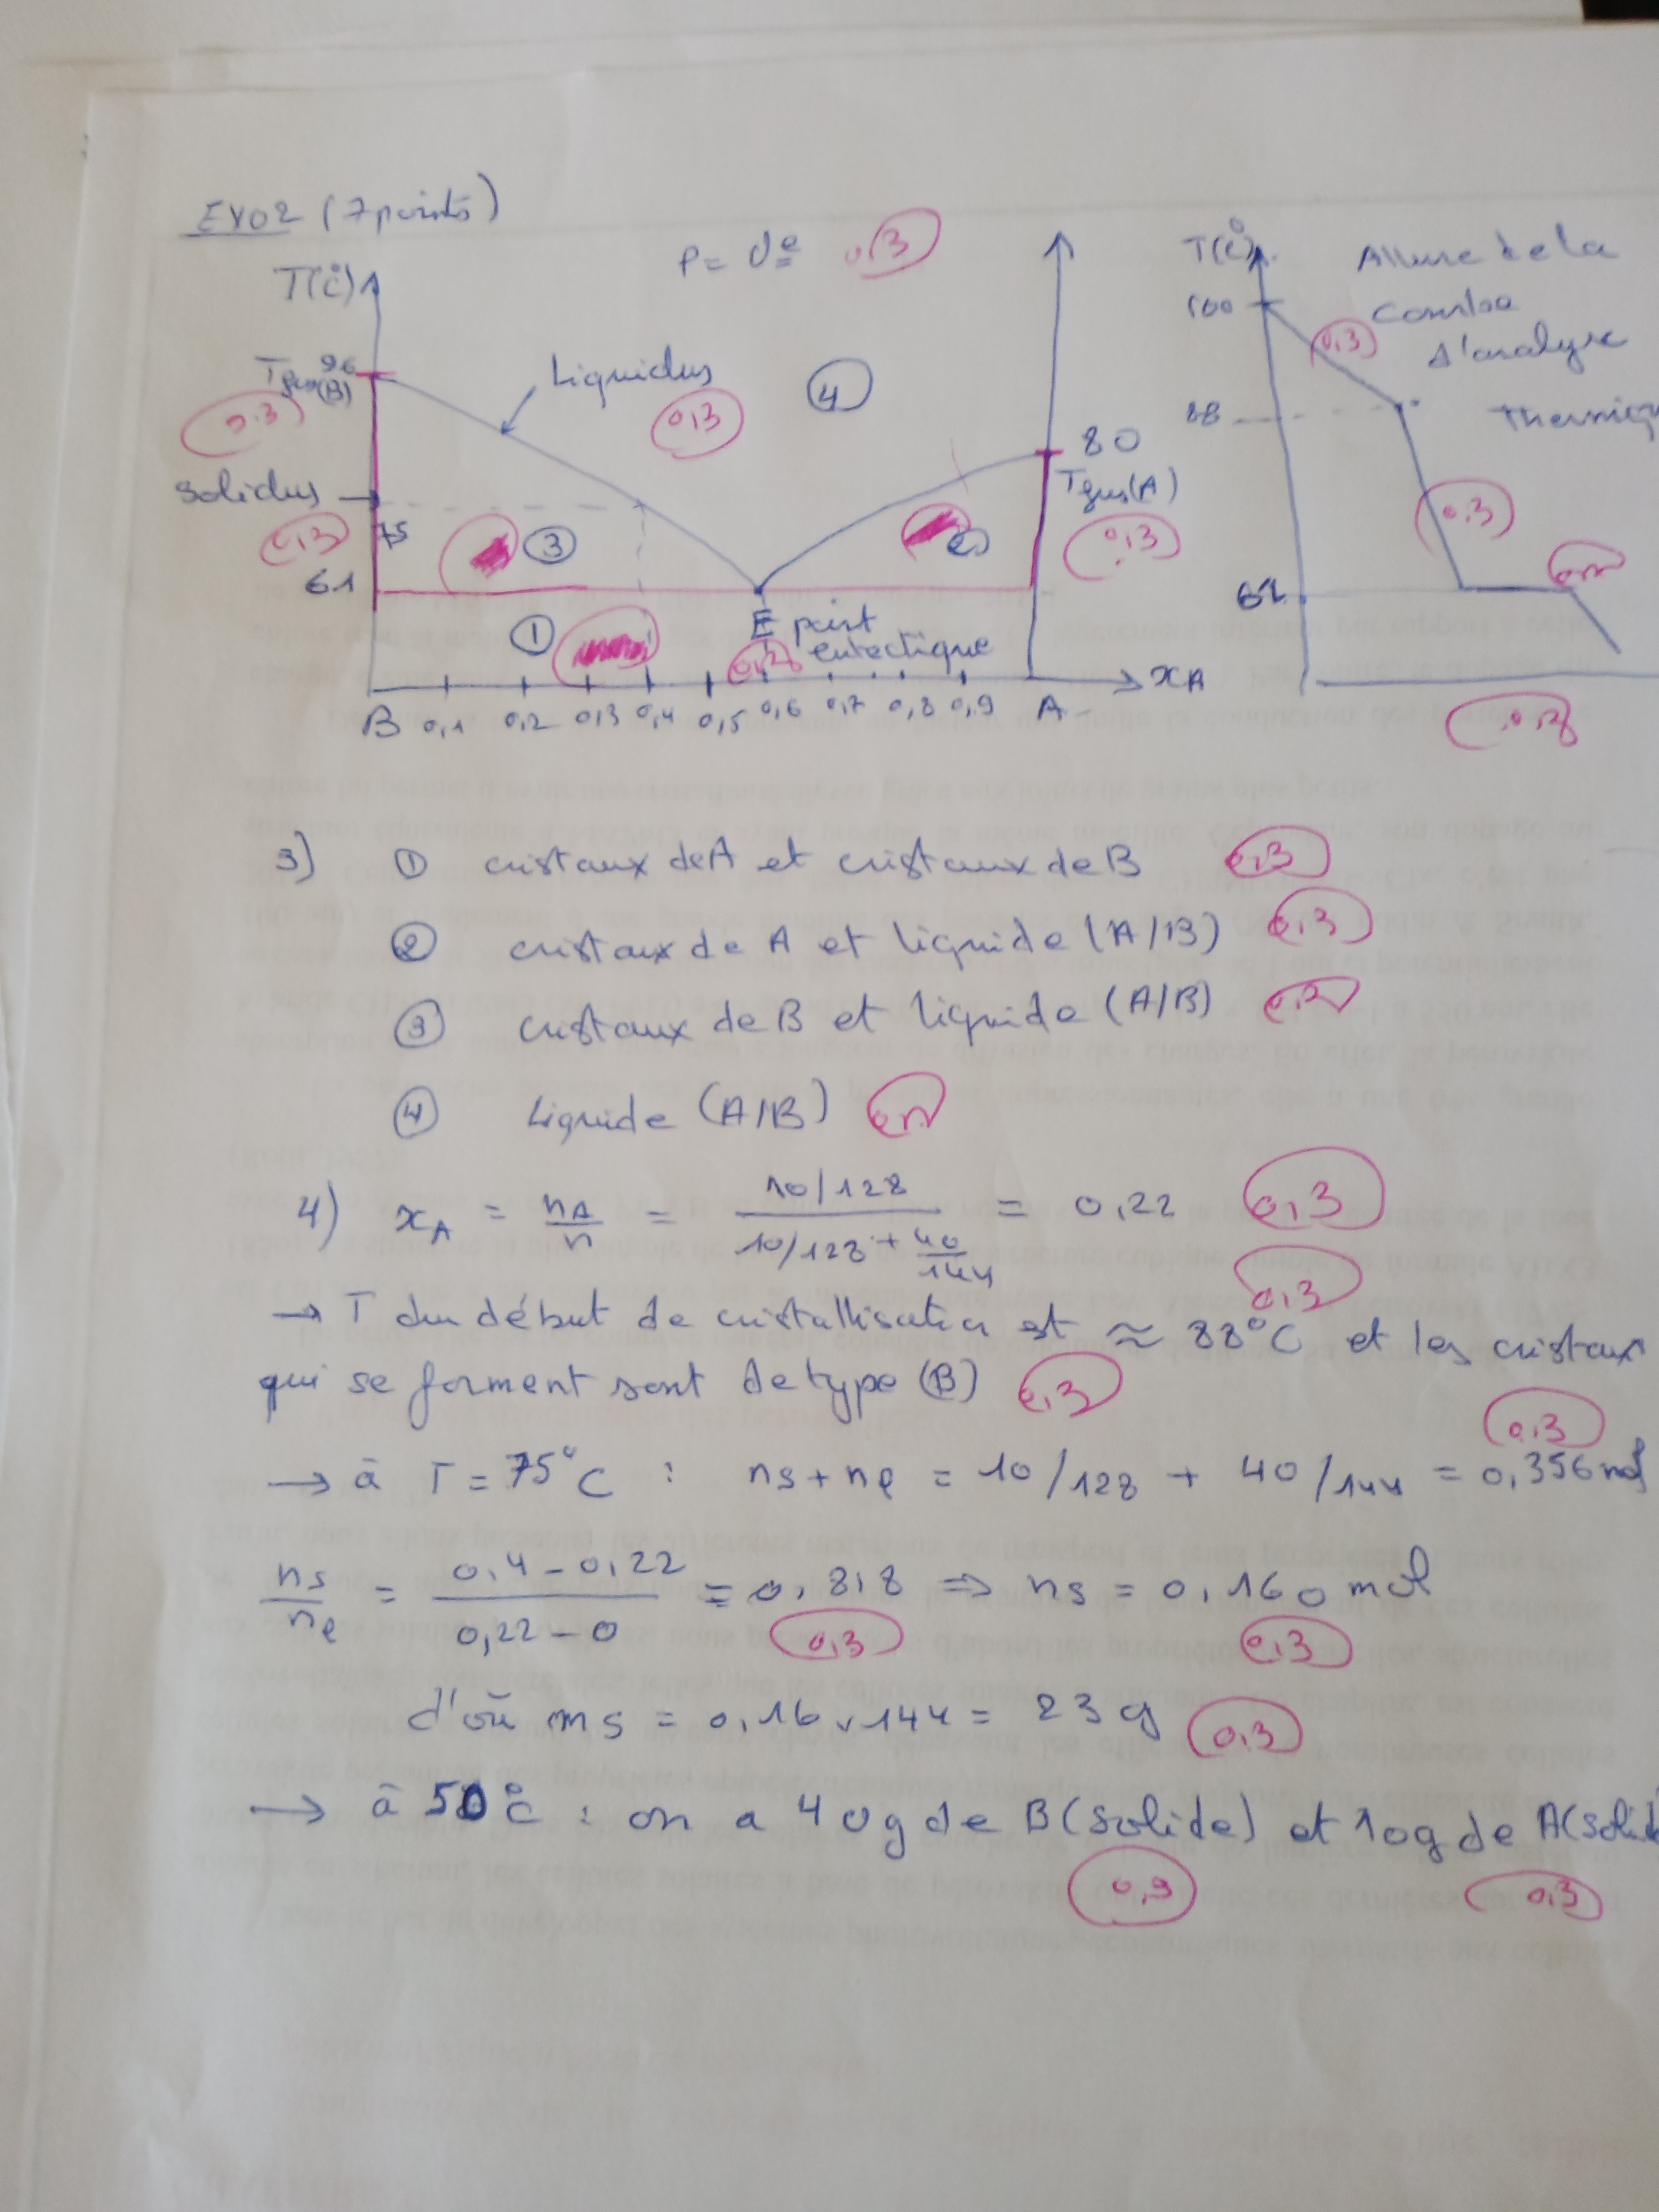 EXO2 (7points)
P = Cte 0,3
T(°C)
Tfus(B) 96
0,3
Liquidus
0,3
4
80
Tfus(A)
0,3
Solidus
0,3
75
3
61
1
E point
eutectique
0,2
B 0,1 0,2 0,3 0,4 0,5 0,6 0,7 0,8 0,9 A
xA
T(°C)
Allure de la
courbe
d'analyse
100
0,3
88
0,3
3) ① cristaux de A et cristaux de B 0,3
② cristaux de A et liquide (A/B) 0,3
③ cristaux de B et liquide (A/B)
④ Liquide (A/B)
4) xA = nA/n = (10/128)/(10/128 + 40/144) = 0,22 0,3
0,3
→ T du début de cristallisation est ≈ 88°C et les cristaux
qui se forment sont de type (B) 0,3
0,3
→ à T = 75°C : ns + nl = 10/128 + 40/144 = 0,356 mol
ns/nl = (0,4 - 0,22)/(0,22 - 0) = 0,818 ⇒ ns = 0,160 mol
0,3 0,3
d'où ms = 0,16 × 144 = 23 g 0,3
→ à 50°C : on a 40g de B (solide) et 10g de A
0,3